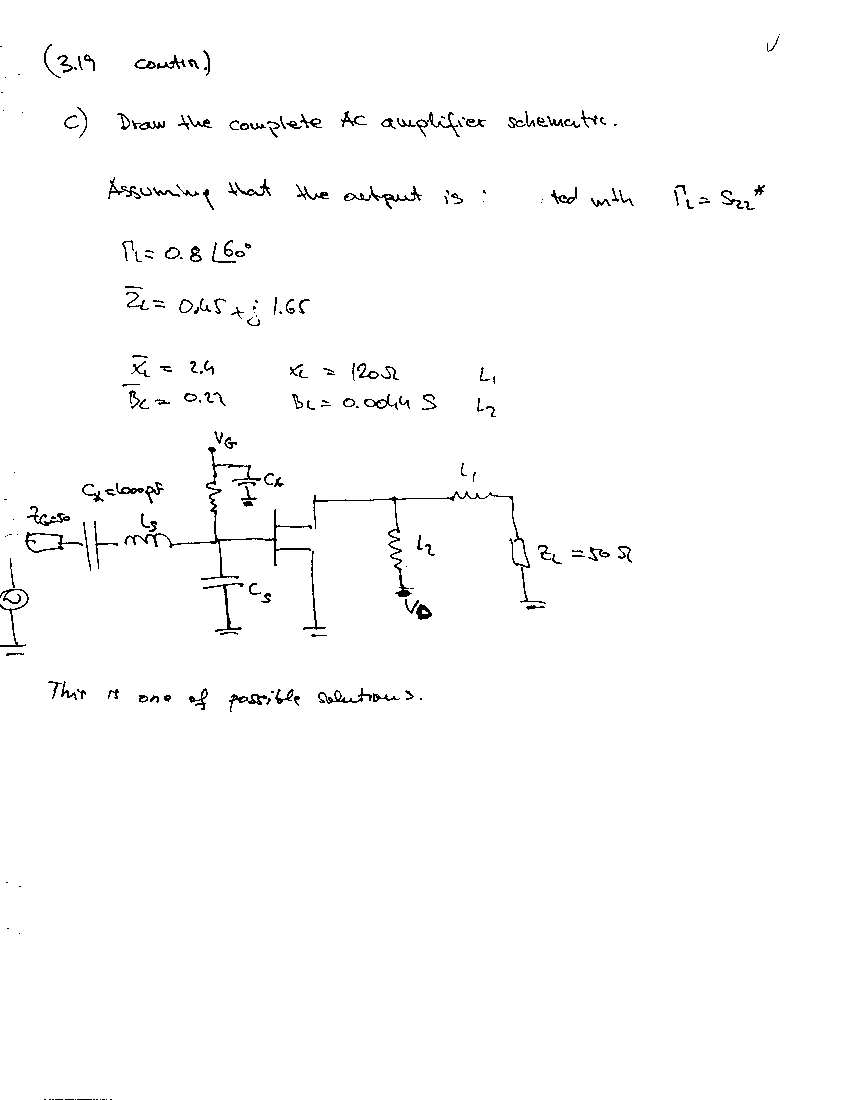 (3.19 contin.)
c) Draw the complete AC amplifier schematic.
Assuming that the output is : ted with ΓL = S22*
ΓL = 0.8 ∠60°
Z̄L = 0.45 + j 1.65
X̄L = 2.4 XL = 120Ω L1
B̄L = 0.22 BL = 0.0044 S L2
VG
Cx
Cx=1000pF
L1
ZG=50
Ls
L2
ZL = 50 Ω
Cs
VD
This is one of possible solutions.